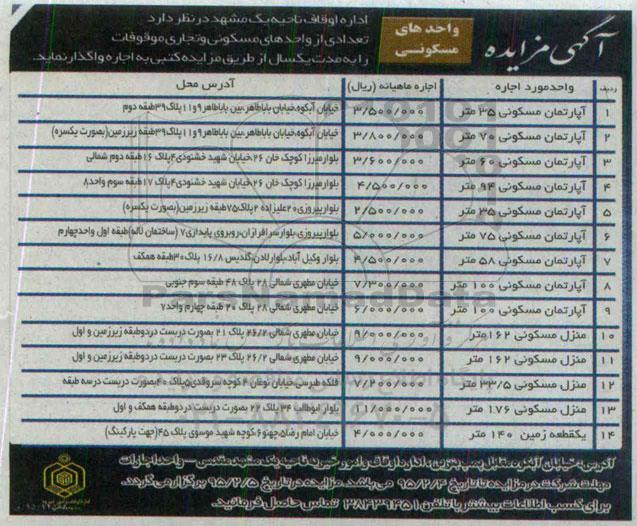 آگهی مزایده
واحدهای مسکونی
اداره اوقاف ناحیه یک مشهد در نظر دارد
تعدادی از واحدهای مسکونی و تجاری موقوفات
را به مدت یکسال از طریق مزایده کتبی به اجاره واگذار نماید.
ردیف واحد مورد اجاره اجاره ماهیانه (ریال) آدرس محل
۱ آپارتمان مسکونی ۳۵ متر ۳/۵۰۰/۰۰۰ خیابان آبکوه،خیابان باباطاهر،بین باباطاهر۹و۱۱پلاک۳۹طبقه دوم
۲ آپارتمان مسکونی ۷۰ متر ۳/۸۰۰/۰۰۰ خیابان آبکوه،خیابان باباطاهر،بین باباطاهر۹و۱۱پلاک۳۹طبقه زیرزمین(بصورت یکسره)
۳ آپارتمان مسکونی ۶۰ متر ۳/۶۰۰/۰۰۰ بلوارمیرزا کوچک خان ۲۶،خیابان شهید خشنودی۴پلاک ۱۶ طبقه دوم شمالی
۴ آپارتمان مسکونی ۹۴ متر ۴/۵۰۰/۰۰۰ بلوارمیرزا کوچک خان ۲۶،خیابان شهید خشنودی۴پلاک ۱۷ طبقه سوم واحد۸
۵ آپارتمان مسکونی ۳۵ متر ۲/۵۰۰/۰۰۰ بلوارپیروزی۲۰علیزاده ۲پلاک۷۵طبقه زیرزمین(بصورت یکسره)
۶ آپارتمان مسکونی ۷۵ متر ۵/۰۰۰/۰۰۰ بلوارپیروزی،بلوارسرافرازان،روبروی پایداری۷ (ساختمان لاله)طبقه اول واحدچهارم
۷ آپارتمان مسکونی ۵۸ متر ۴/۵۰۰/۰۰۰ بلوار وکیل آباد،بلوارلادن،گلدیس ۱۶/۸ پلاک۳۰طبقه همکف
۸ آپارتمان مسکونی ۱۰۰ متر ۷/۳۰۰/۰۰۰ خیابان مطهری شمالی ۲۸ پلاک ۴۸ طبقه سوم جنوبی
۹ آپارتمان مسکونی ۱۰۰ متر ۶/۰۰۰/۰۰۰ خیابان مطهری شمالی ۲۸ پلاک ۲۰ طبقه چهارم واحد۷
۱۰ منزل مسکونی ۱۶۲متر ۹/۰۰۰/۰۰۰ خیابان مطهری شمالی ۲۶/۲ پلاک ۲۱ بصورت دربست دردوطبقه زیرزمین و اول
۱۱ منزل مسکونی ۱۶۲ متر ۹/۰۰۰/۰۰۰ خیابان مطهری شمالی ۲۶/۲ پلاک ۲۳ بصورت دربست دردوطبقه زیرزمین و اول
۱۲ منزل مسکونی ۳۳/۵ متر ۷/۲۰۰/۰۰۰ فلکه طبرسی،خیابان نوغان ۴ کوچه سروقدی۵پلاک ۴۰بصورت دربست درسه طبقه
۱۳ منزل مسکونی ۱۷۶ متر ۱۱/۰۰۰/۰۰۰ بلوار ابوطالب ۳۴ پلاک ۴۲ بصورت دربست دردوطبقه همکف و اول
۱۴ یکقطعه زمین ۱۴۰ متر ۴/۰۰۰/۰۰۰ خیابان امام رضا۵،چهنو۶کوچه شهید موسوی پلاک ۴۵(جهت پارکینگ)
آدرس: خیابان آبکوه مقابل پمپ بنزین، اداره اوقاف و امور خیریه ناحیه یک مشهد مقدس – واحد اجارات
مهلت شرکت در مزایده تا تاریخ ۹۵/۲/۴ می باشد مزایده در تاریخ ۹۵/۲/۵ برگزار می گردد.
برای کسب اطلاعات بیشتر با تلفن ۳۸۴۳۹۴۵۱ تماس حاصل فرمائید.
ParsNamadData